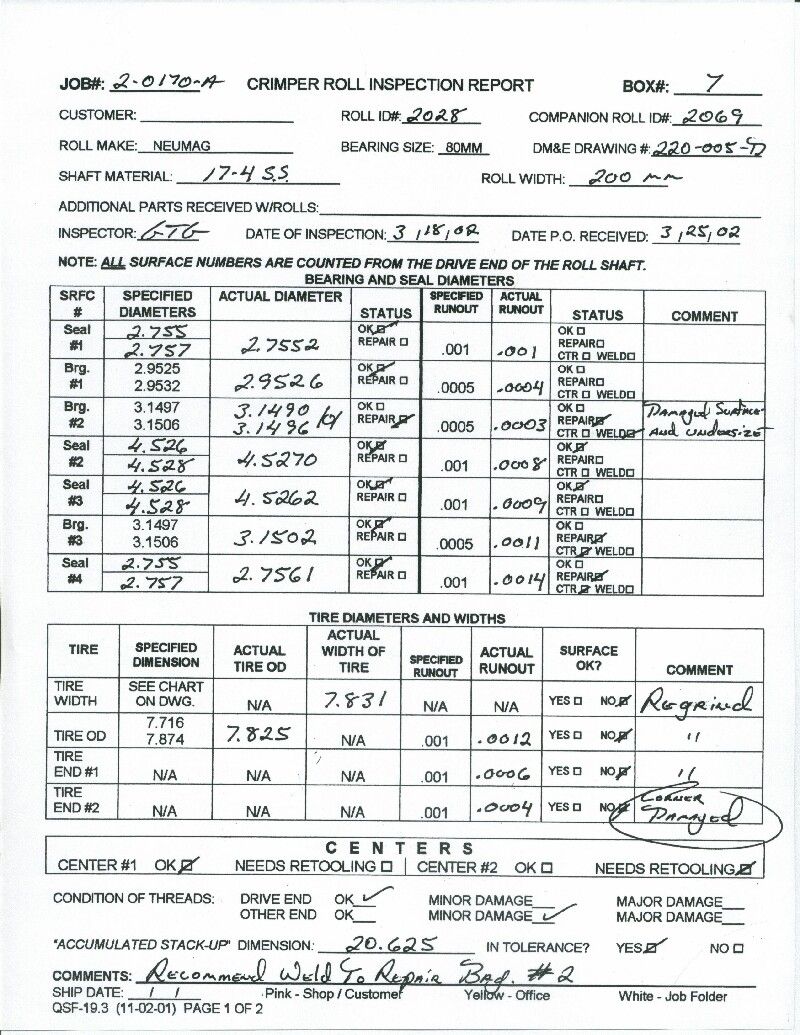 JOB#: 2-0170-A CRIMPER ROLL INSPECTION REPORT BOX#: 7
CUSTOMER: ROLL ID#: 2028 COMPANION ROLL ID#: 2069
ROLL MAKE: NEUMAG BEARING SIZE: 80MM DM&E DRAWING #: 220-005-D
SHAFT MATERIAL: 17-4 S.S. ROLL WIDTH: 200 mm
ADDITIONAL PARTS RECEIVED W/ROLLS:
INSPECTOR: GTG DATE OF INSPECTION: 3/18/02 DATE P.O. RECEIVED: 3/25/02
NOTE: ALL SURFACE NUMBERS ARE COUNTED FROM THE DRIVE END OF THE ROLL SHAFT.
BEARING AND SEAL DIAMETERS
SRFC # SPECIFIED DIAMETERS ACTUAL DIAMETER STATUS SPECIFIED RUNOUT ACTUAL RUNOUT STATUS COMMENT
Seal #1 2.755 2.757 2.7552 OK REPAIR .001 .001 OK REPAIR CTR WELD
Brg. #1 2.9525 2.9532 2.9526 OK REPAIR .0005 .0004 OK REPAIR CTR WELD
Brg. #2 3.1497 3.1506 3.1490 3.1496 OK REPAIR .0005 .0003 OK REPAIR CTR WELD Damaged Surface And undersize
Seal #2 4.526 4.528 4.5270 OK REPAIR .001 .0008 OK REPAIR CTR WELD
Seal #3 4.526 4.528 4.5262 OK REPAIR .001 .0009 OK REPAIR CTR WELD
Brg. #3 3.1497 3.1506 3.1502 OK REPAIR .0005 .0011 OK REPAIR CTR WELD
Seal #4 2.755 2.757 2.7561 OK REPAIR .001 .0014 OK REPAIR CTR WELD
TIRE DIAMETERS AND WIDTHS
TIRE SPECIFIED DIMENSION ACTUAL TIRE OD ACTUAL WIDTH OF TIRE SPECIFIED RUNOUT ACTUAL RUNOUT SURFACE OK? COMMENT
TIRE WIDTH SEE CHART ON DWG. N/A 7.831 N/A N/A YES NO Regrind
TIRE OD 7.716 7.874 7.825 N/A .001 .0012 YES NO "
TIRE END #1 N/A N/A N/A .001 .0006 YES NO "
TIRE END #2 N/A N/A N/A .001 .0004 YES NO Corner Damaged
CENTERS
CENTER #1 OK NEEDS RETOOLING CENTER #2 OK NEEDS RETOOLING
CONDITION OF THREADS: DRIVE END OK MINOR DAMAGE MAJOR DAMAGE
OTHER END OK MINOR DAMAGE MAJOR DAMAGE
"ACCUMULATED STACK-UP" DIMENSION: 20.625 IN TOLERANCE? YES NO
COMMENTS: Recommend Weld To Repair Brg. #2
SHIP DATE: / / Pink - Shop / Customer Yellow - Office White - Job Folder
QSF-19.3 (11-02-01) PAGE 1 OF 2